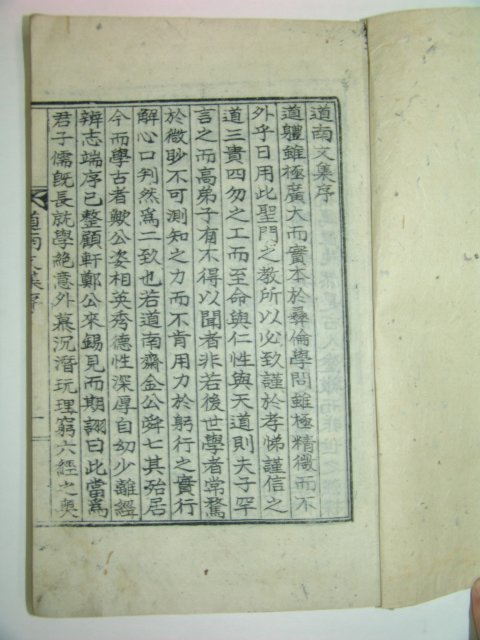 道南文集序
道體雖極廣大而實本於彛倫學問雖極精微而不
外乎日用此聖門之教所以必致謹於孝悌謹信之
道三貴四勿之工而至命與仁性與天道則夫子罕
言之而高弟子有不得以聞者非若後世學者常騖
於微眇不可測知之力而不肯用力於躬行之實行
解心口判然爲二致也若道南齋金公舜七其殆居
今而學古者歟公姿相英秀德性深厚自幼少離經
辨志端序已整顧軒鄭公來錫見而期詡曰此當爲
君子儒旣長就學絶意外慕沉潛玩理窮六經之奧
道南文集序